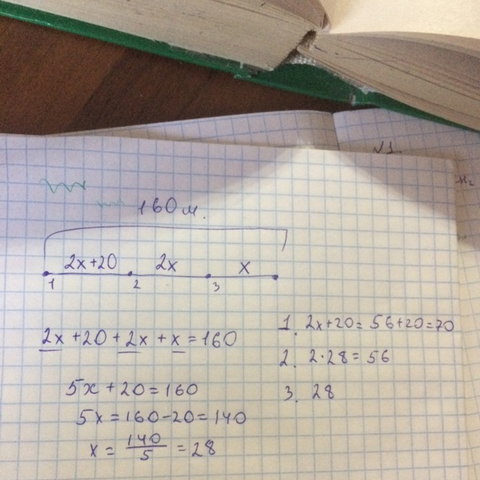 √1.
160 м.
2x+20 2x x
1 2 3
2x+20+2x+x=160
5x+20=160
5x=160-20=140
x=140/5=28
1. 2x+20=56+20=70
2. 2·28=56
3. 28